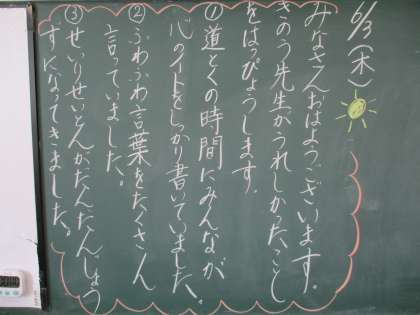 6/3(木)
みなさんおはようございます。
きのう先生がうれしかったこと
をはっぴょうします。
①道とくの時間にみんなが
心のイトをしっかり書いていました。
②ふわふわ言葉をたくさん
言っていました。
③せいりせいとんがだんだんじょう
ずになってきました。